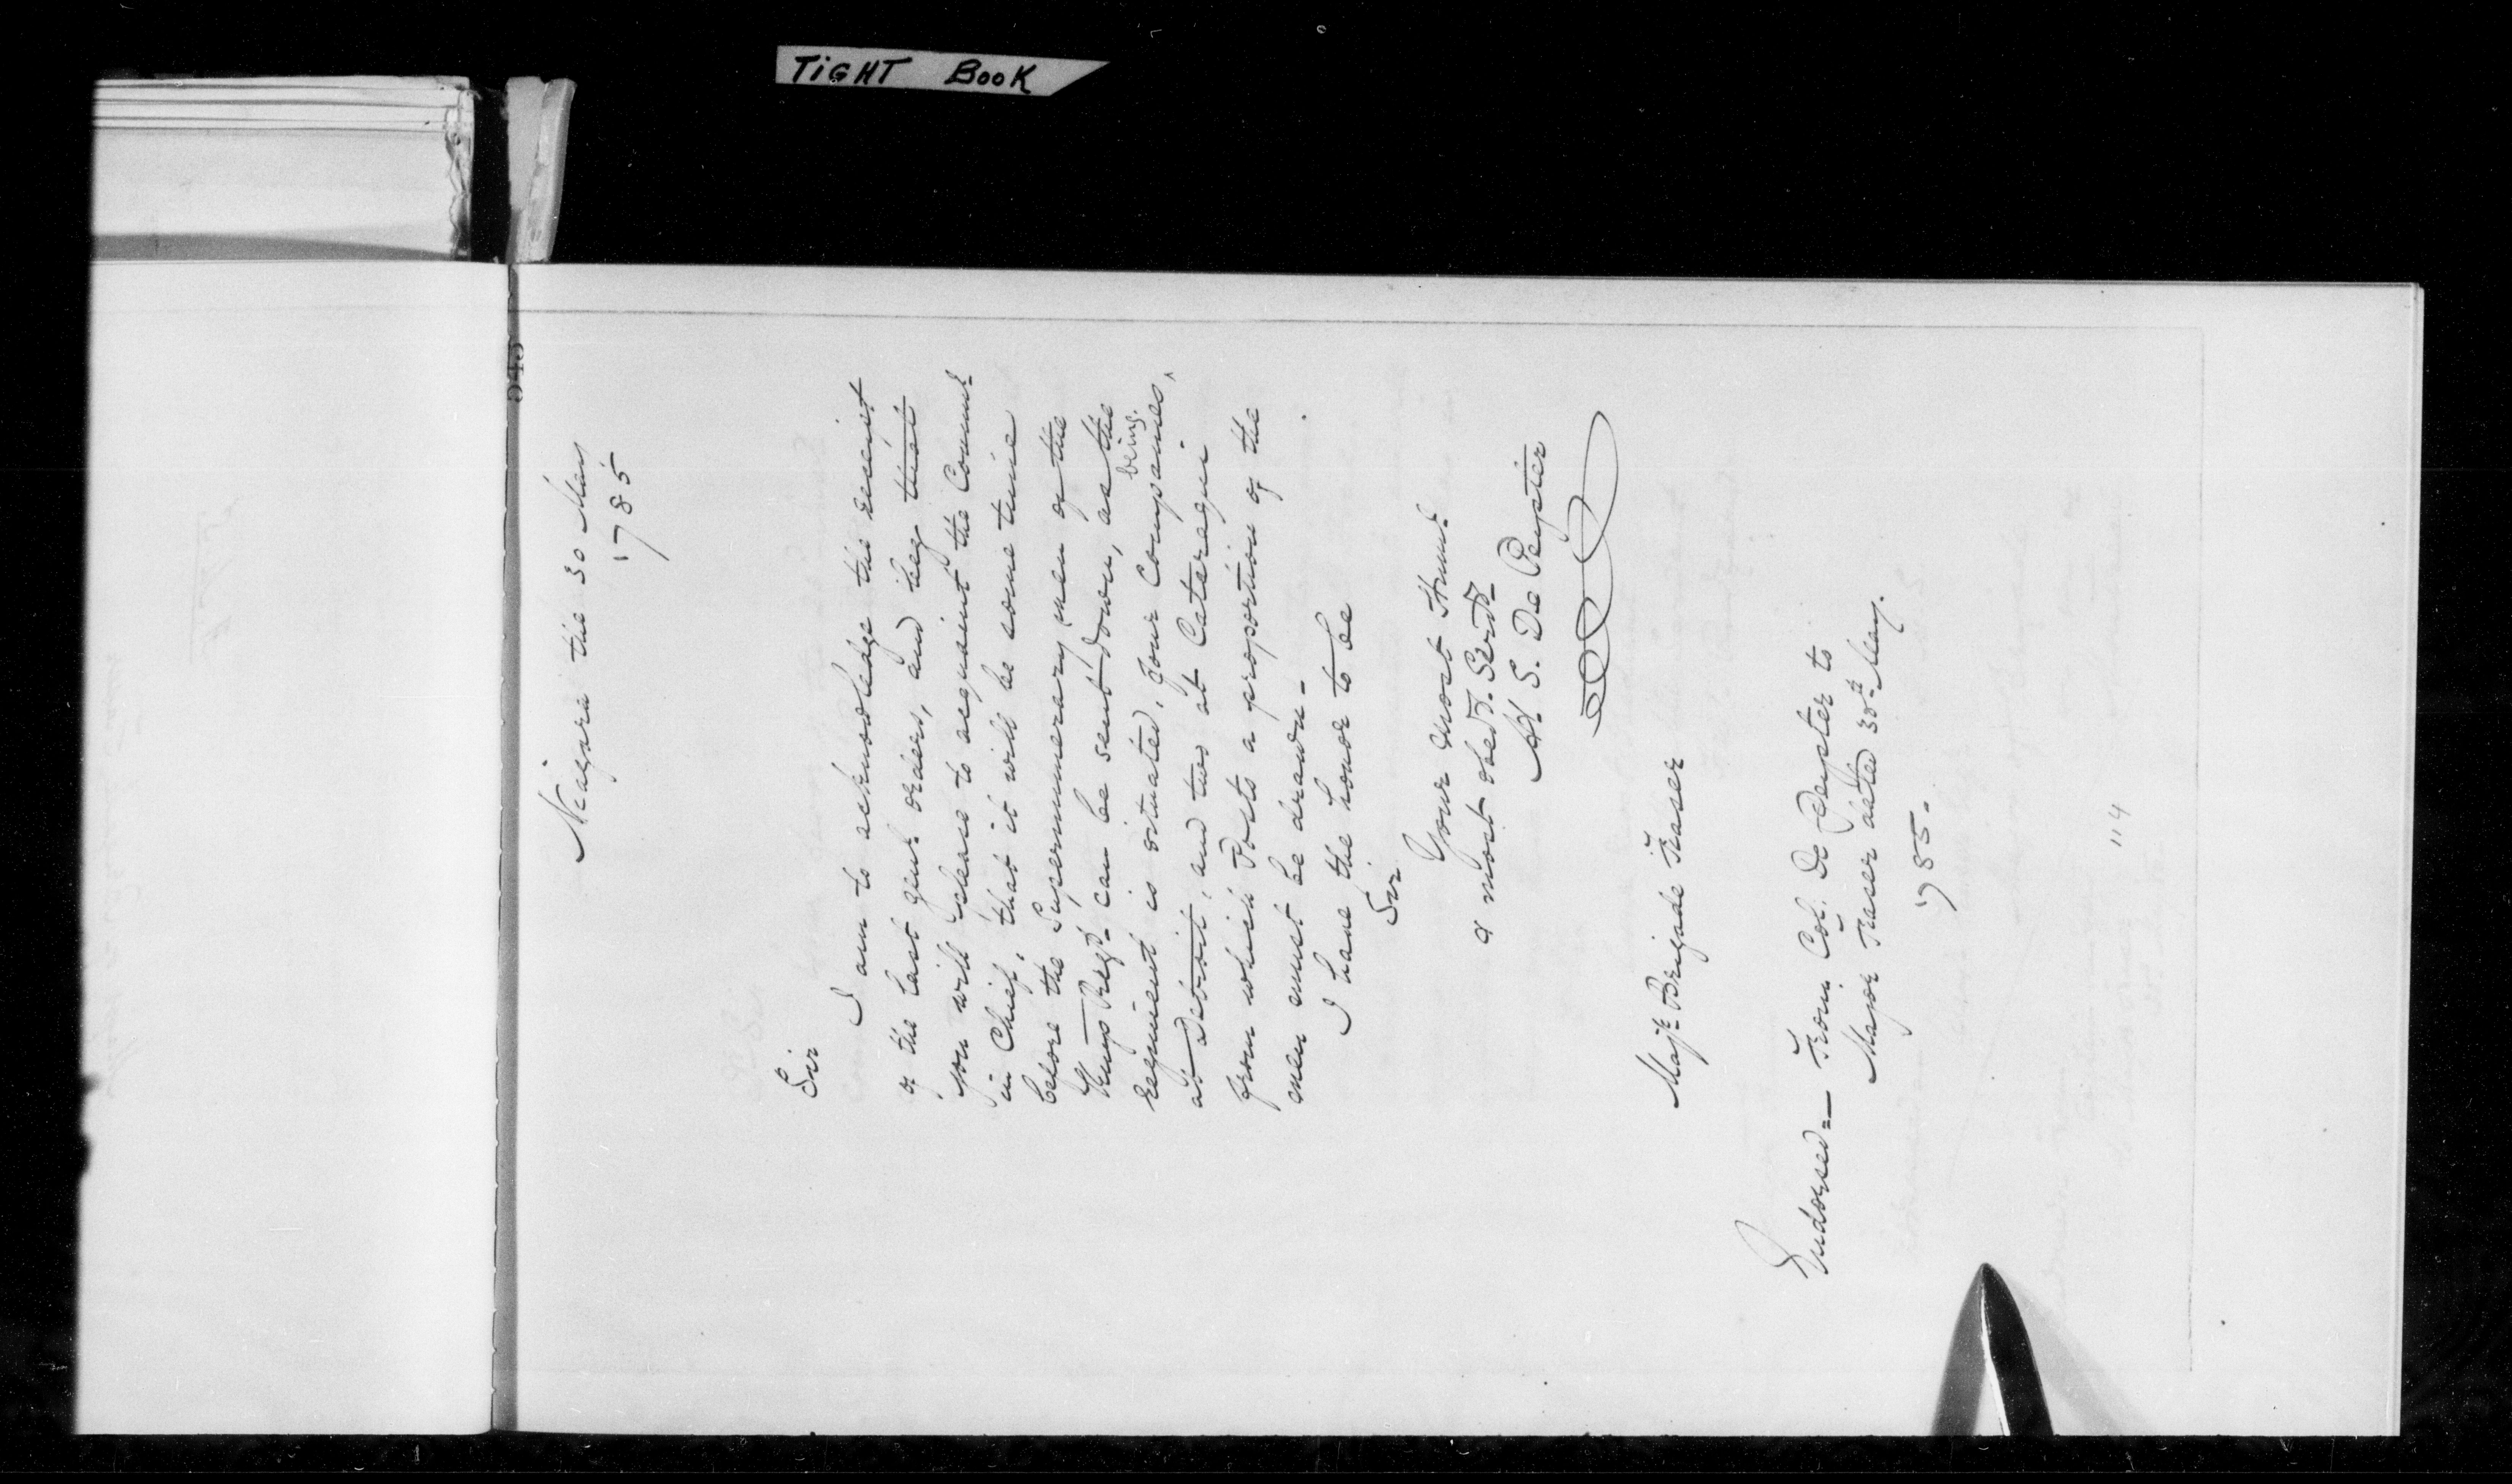 TIGHT BOOK
545
Niagara the 30 May
1785
Sir
I am to acknowledge the receipt
of the last Genl. orders, and beg that
you will please to acquaint the Commr.
in Chief, that it will be some time
before the Supernumerary men of the
Kings Regt. can be sent down, as the
regiment is situated, four Companies, ^ being
at Detroit, and two at Cataraqui
from which Posts a proportion of the
men must be drawn -
I have the honor to be
Sir
Your most Huml.
& most obedt. Servt.
At S. De Peyster
Majr. Brigade Fraser
Endorsed = From Col. De Peyster to
Major Fraser dated 30th May.
1785.
114